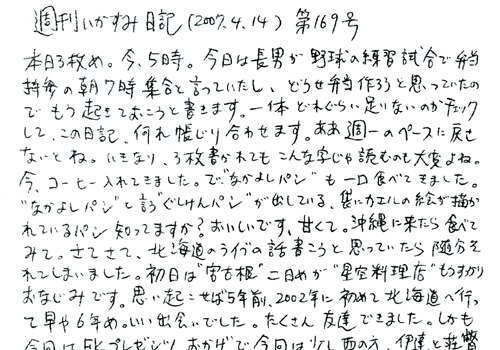 週刊いかすみ日記(2007.4.14) 第169号
本日3枚め。今、5時。今日は長男が野球の練習試合で弁当
持参の朝7時集合と言っていたし、どうせ弁当作ろうと思っていたの
でもう起きておこうと書きます。一体どれぐらい足りないのかチェック
して、この日記、何れ帳じり合わせます。ああ週一のペースに戻せ
ないとね。いきなり、3枚書かれてもこんな字じゃ読むのも大変よね。
今、コーヒー入れてきました。で"なかよしパン"も一口食べてきました。
"なかよしパン"と言う"ぐしけんパン"が出している、袋にカエルの絵が描か
れているパン知ってますか?おいしいです、甘くて。沖縄に来たら食べて
みて。さてさて、北海道のライブの話書こうと思っていたら随分そ
れてしまいました。初日は"宮古根"二日めが"星空料理店"もうすかり
おなじみです。思い起こせば5年前、2002年に初めて北海道へ行っ
て早や6年め。いい出会いでした。たくさん友達できました。しかも
今回はFKプレゼンツのおかげで今回は少し西の方、伊達と壮瞥